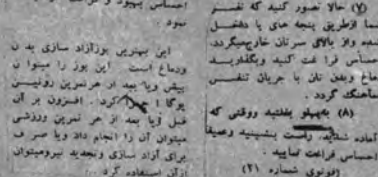 (۷) حالا تصور کنید که نفس
شما ازطریق پنجه های پا داخل
شده واز بالای سر تان خارج میگردد.
احساس فرا غت کنید وبگذارید
دماغ وبدن تان با جریان تنفس
هماهنگ گردد .
(۸) به پهلو بغلتید ووقتی که
آماده شدید، راست بنشینید وعمیقا
احساس فراغت نمایید .
(فوتوی شماره ۲۱)
احساس بهبود و
نمود .
این بهترین پوزآزاد سازی بد ن
ودماغ است . این پوز را میتوا ن
پیش ویا بعد از هر تمرین روتین
یوگا اجرا کرد. افزون بر آن
قبل ویا بعد از هر تمرین ورزشی
میتوان آن را انجام داد ویا صر ف
برای آزاد سازی وتجدید نیرومیتوان
ازآن استفاده کرد ...